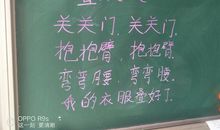 关关门，关关门，
抱抱臂，抱抱臂，
弯弯腰，弯弯腰，
我的衣服叠好了。
OPPO R9s
这一刻 更清晰